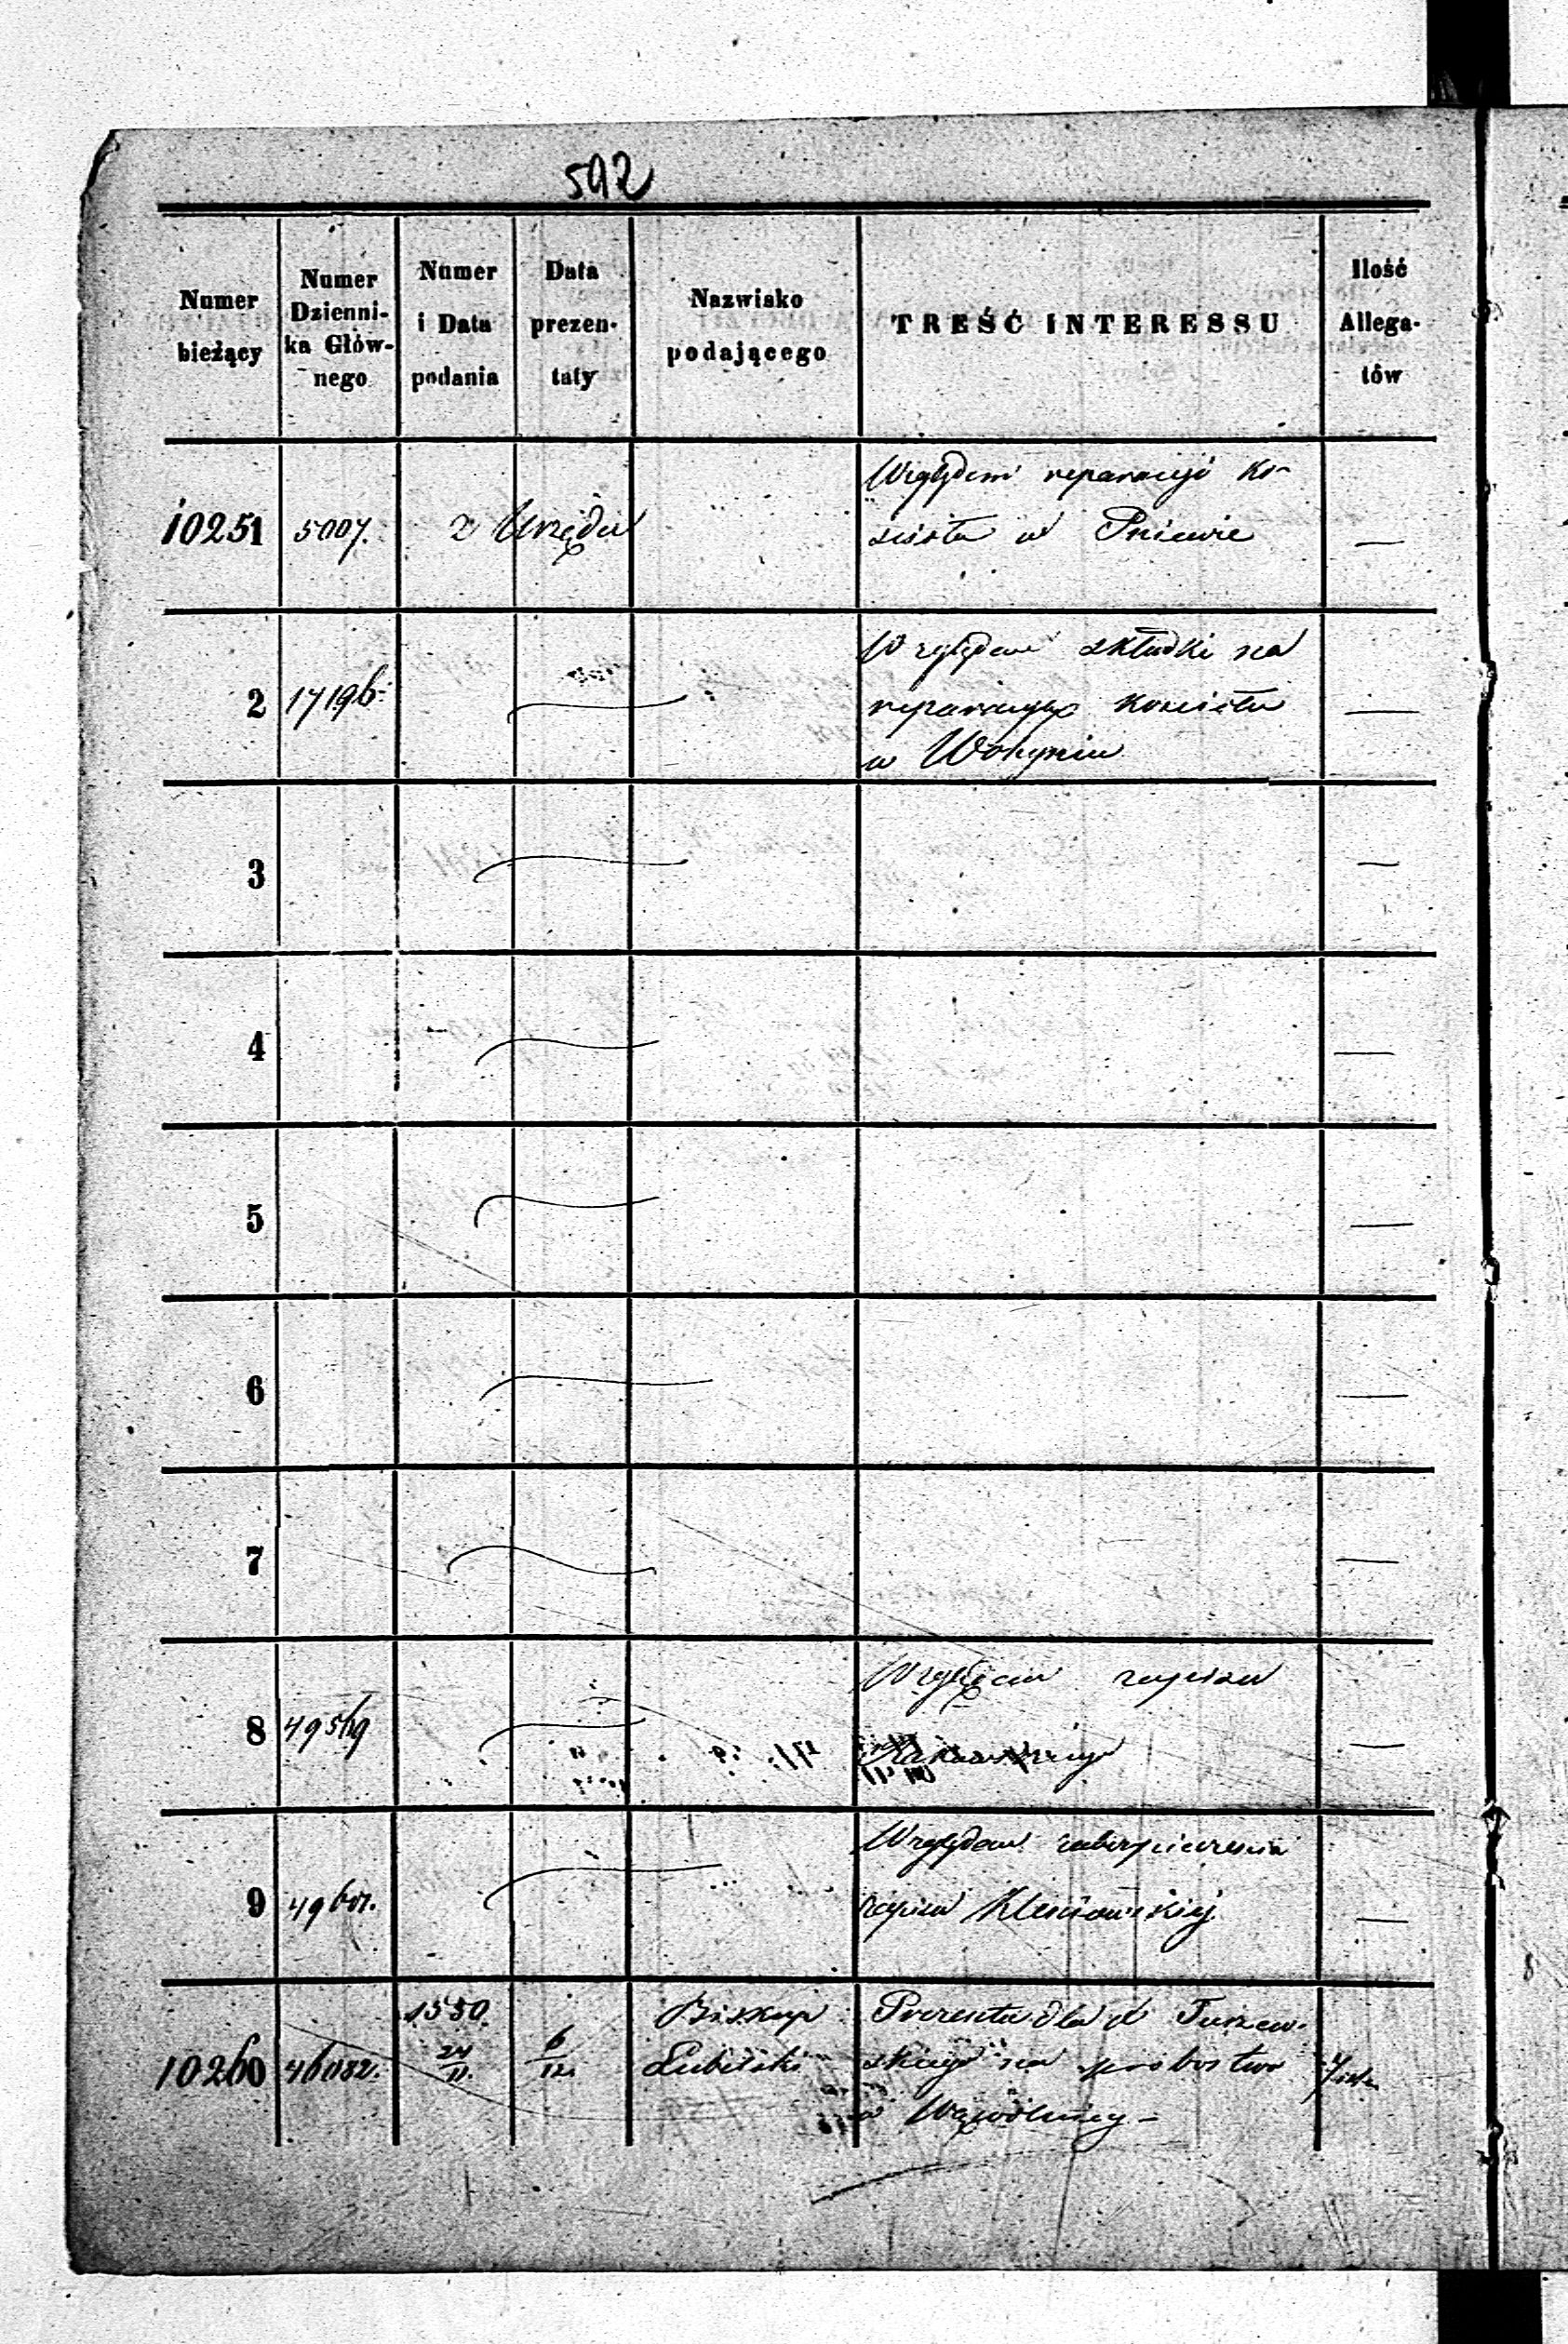 592
Numer bieżący | Numer Dzienni-ka Głów-nego | Numer i Data podania | Data prezen-taty | Nazwisko podającego | TREŚĆ INTERESSU | Ilość Allega-tów
10251 | 5007. | z Urzędu | Względem reparacyi ko-
ścioła w Pniewie | —
2 | 17196. | Względem składki na
reparacyę kościoła
w Wohyniu | —
3 | —
4 | —
5 | —
6 | —
7 | —
8 | 49569 | Względem zapisu
| —
9 | Względem zabezpieczenia
zapisu | —
10260 | 46082. | 1550. 24/11. | 6/12. | Biskup
Lubelski | Prezenta dla X Turzew-
skiego na probostwo
w Wąwolnicy –